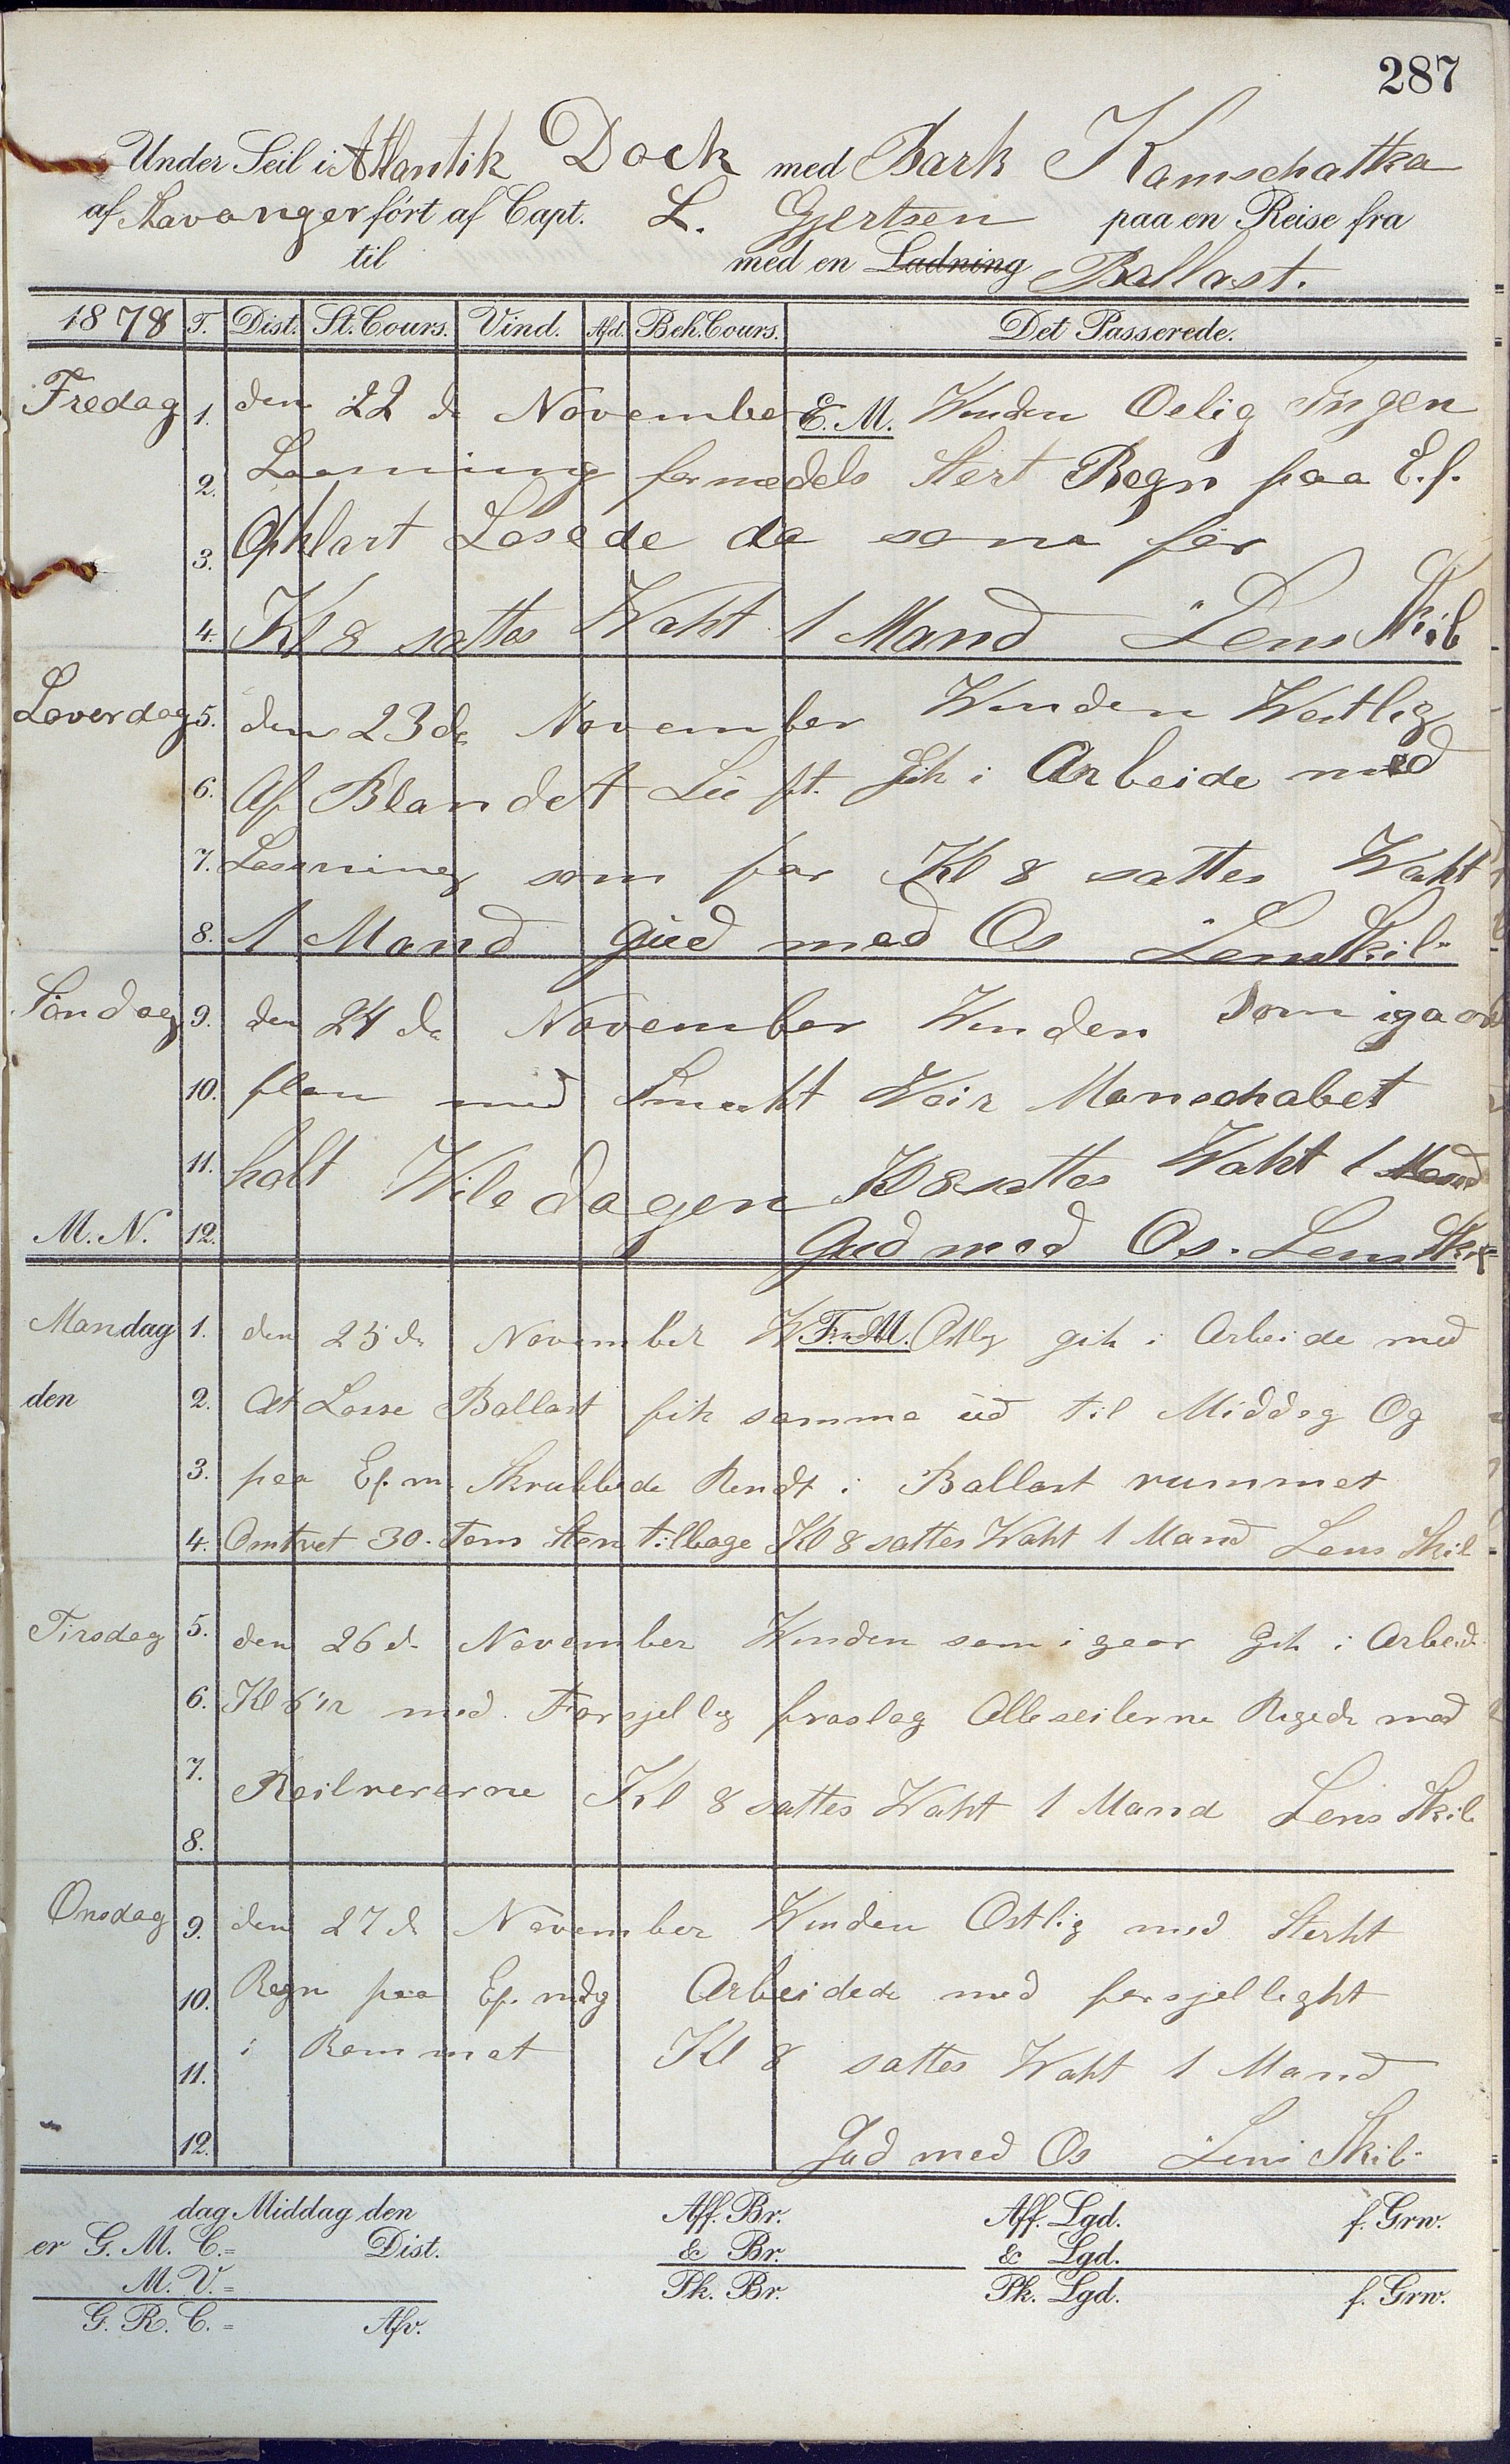 287
Under Seil i Atlantik Dock med Bark Kamschatka
af Stavanger ført af Capt. L. Gjertsen paa en Reise fra
til med en Ladning Ballast.
1878 T. Dist. St. Cours. Vind. Afd. Beh. Cours. Det Passerede.
Fredag 1. den 22 de November E. M. Vinden Oslig Ingen
2. Losning formedels Stert Regn paa E.f.
3. Opklart Losede da som før
4. Kl 8 sattes Waht 1 Mand Lens Skib
Loverdag 5. den 23 de November Winden Westlig
6. Af Blandet Luft. Gik i Arbeide med
7. Lossning som for Kl 8 sattes Waht
8. 1 Mand Gud med Os Lens Skib
Söndag 9. den 24 de November Winden som igaar
10. flau med Smukt Veir Manschabet
11. holt Wiledagen Kl 8 sattes Waht 1 Mand
M. N. 12. Gud med Os. Lens Skib
Mandag 1. den 25 de November W F. M. Ostlig gik i Arbeide med
den 2. At Losse Ballast fik samme ud til Middag Og
3. paa Ef. m. Skrubbede Rendt i Ballast rummet
4. Omtret 30. Tons Sten tilbage Kl 8 sattes Waht 1 Mand Lens Skib
Tirsdag 5. den 26 d. November Winden som i gaar Gik i Arbeid
6. Kl 6 med. Forsjellig fraslag Alle seilerne Regede med
7. Reilrererne Kl 8 sattes Waht 1 Mand Lens Skib
8.
Onsdag 9. den 27 d November Winden Ostlig med Sterkt
10. Regn paa Ef. mdg Arbeidede med forsjelleght
11. i Rommet Kl 8 sattes Waht 1 Mand
12. Gud med Os Lens Skib
dag Middag den Aff. Br. Aff. Lgd. f. Grw.
er G. M. C.= Dist. & Br. & Lgd.
M. V.= Pk. Br. Pk. Lgd. f. Grw.
G. R. C. = Afv.